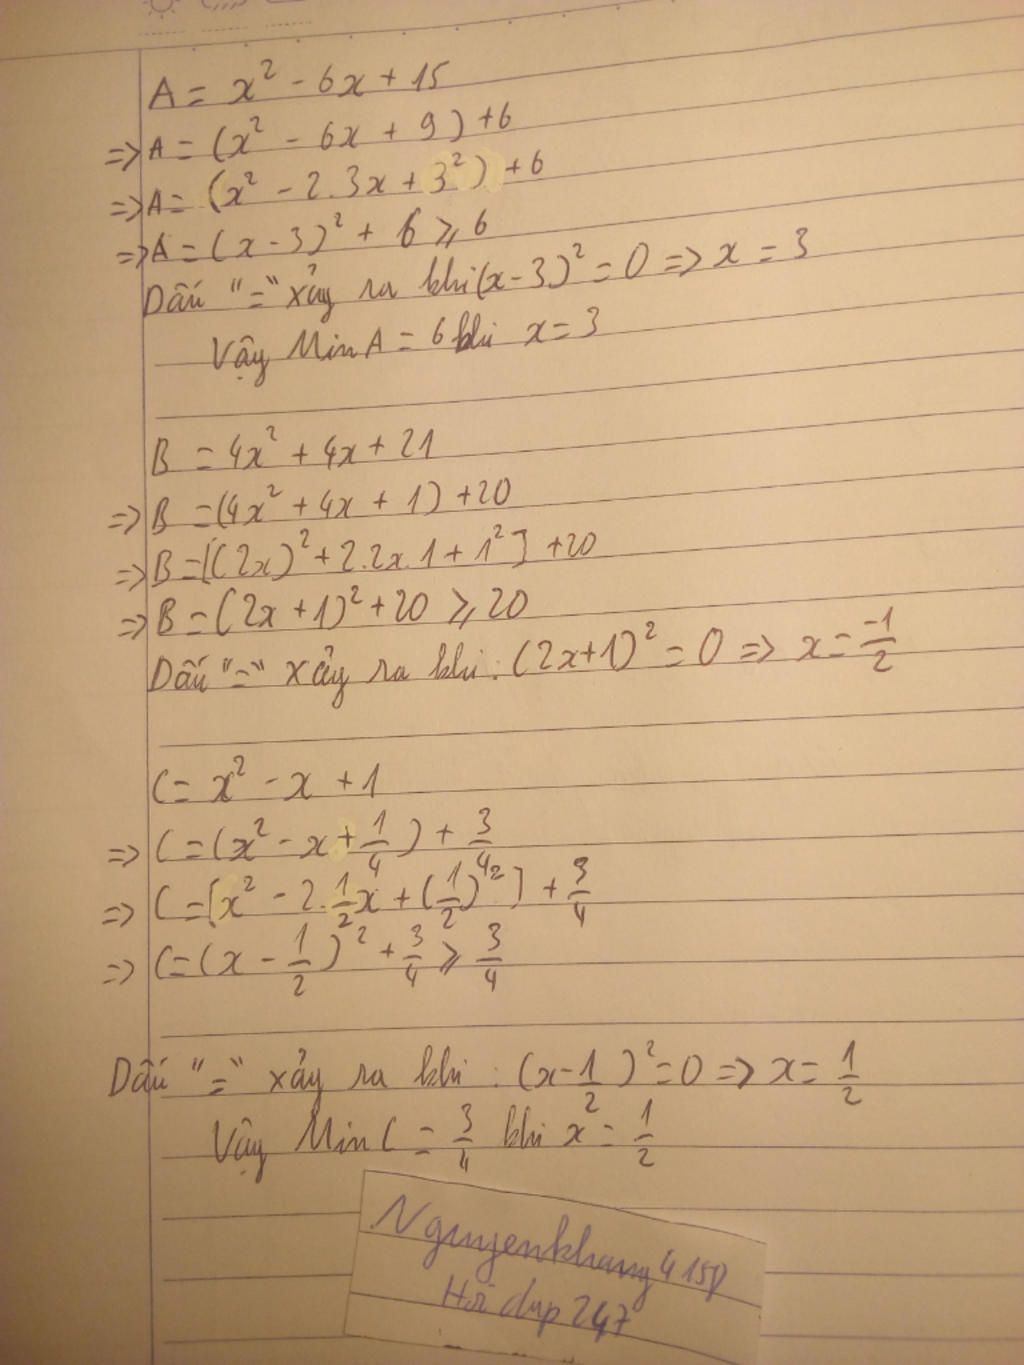 A = x² - 6x + 15
=> A = (x² - 6x + 9) + 6
=> A = (x² - 2.3x + 3²) + 6
=> A = (x - 3)² + 6 ⩾ 6
Dấu "=" xảy ra khi (x - 3)² = 0 => x = 3
Vậy Min A = 6 khi x = 3
B = 4x² + 4x + 21
=> B = (4x² + 4x + 1) + 20
=> B = [(2x)² + 2.2x.1 + 1²] + 20
=> B = (2x + 1)² + 20 ⩾ 20
Dấu "=" xảy ra khi: (2x+1)² = 0 => x = -1/2
C = x² - x + 1
=> C = (x² - x + 1/4) + 3/4
=> C = [x² - 2.1/2x + (1/2)²] + 3/4
=> C = (x - 1/2)² + 3/4 ⩾ 3/4
Dấu "=" xảy ra khi: (x - 1/2)² = 0 => x = 1/2
Vậy Min C = 3/4 khi x = 1/2
Nguyenkhang
247